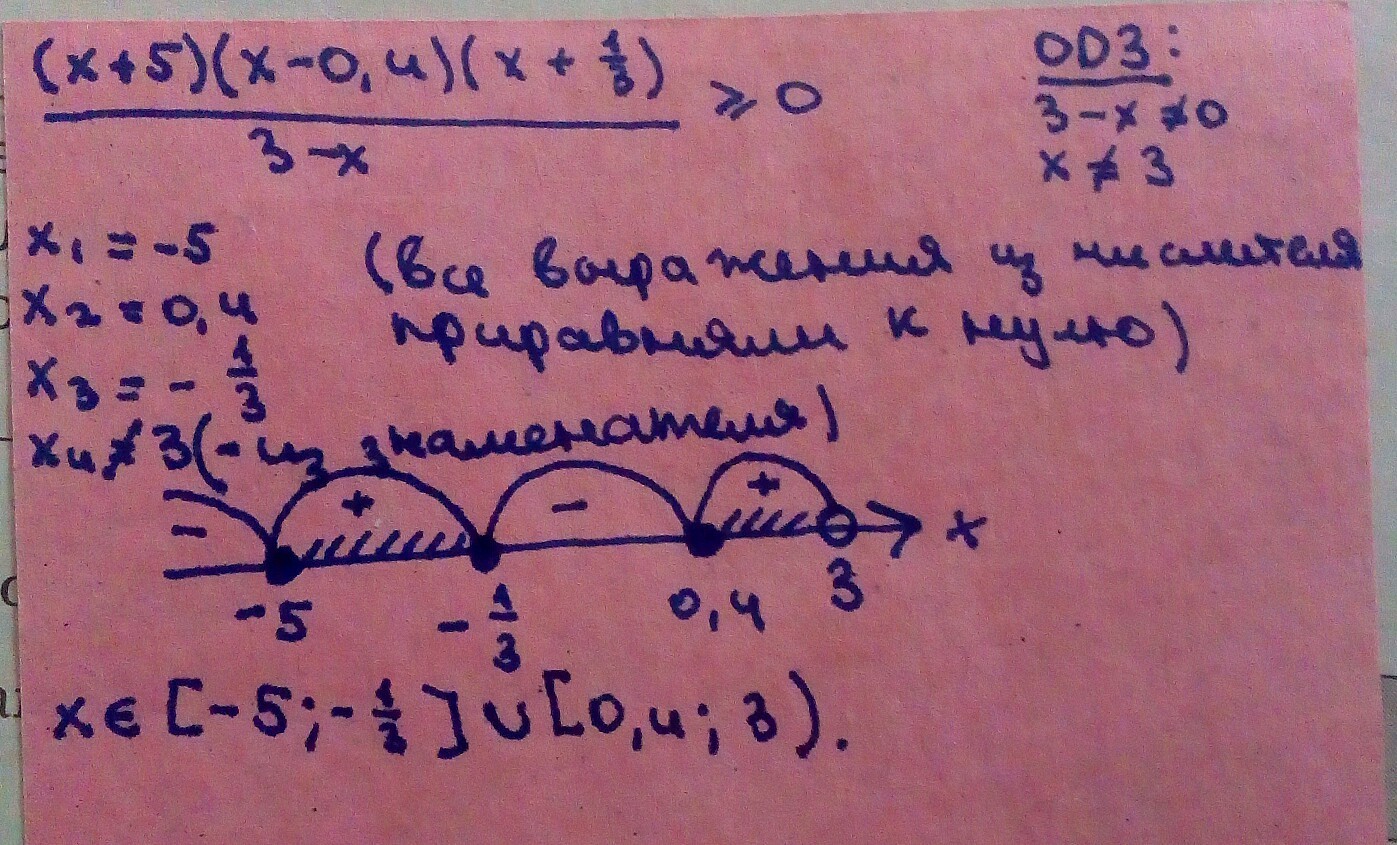 (x+5)(x-0,4)(x+1/3)
3-x
≥ 0
ОДЗ:
3-x ≠ 0
x ≠ 3
x₁ = -5
x₂ = 0,4
x₃ = - 1/3
x₄ ≠ 3 (- из знаменателя)
(все выражения из числителя
приравняли к нулю)
- + - +
-5 - 1/3 0,4 3 x
x ∈ [-5; - 1/3] ∪ [0,4; 3).